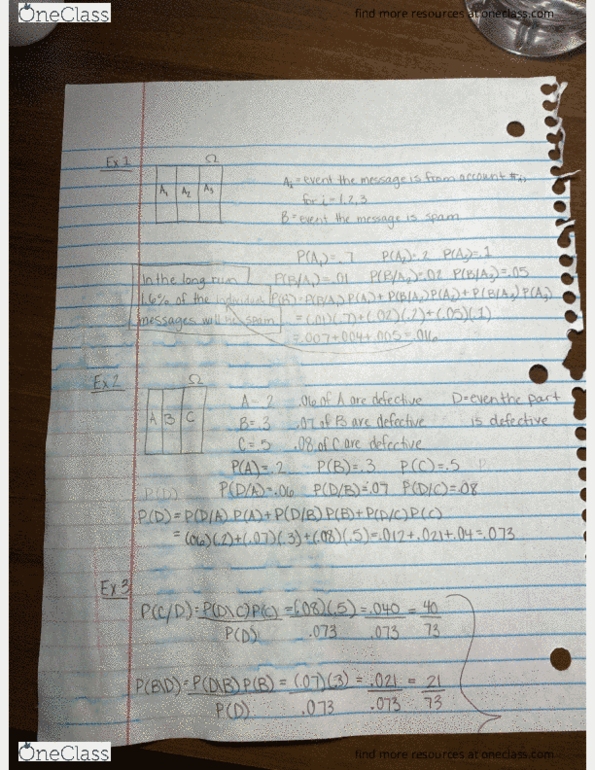 OneClass
find more resources at oneclass.com
Ex 1
Ω
A₁ A₂ A₃
Aᵢ = event the message is from account
for i = 1,2,3
B = event the message is spam
P(A₁)= .7 P(A₂)= .2 P(A₃)= .1
In the long run P(B/A₁)= .01 P(B/A₂)= .02 P(B/A₃)= .05
1.6% of the individual P(B)= P(B/A₁)P(A₁)+P(B/A₂)P(A₂)+P(B/A₃)P(A₃)
messages will be spam = (.01)(.7)+(.02)(.2)+(.05)(.1)
= .007+.004+.005= .016
Ex 2
Ω
A B C
A= .2 .06 of A are defective D= even the part
B= .3 .07 of B are defective is defective
C= .5 .08 of C are defective
P(A)= .2 P(B)= .3 P(C)= .5
P(D) P(D/A)= .06 P(D/B)= .07 P(D/C)= .08
P(D)= P(D/A)P(A)+P(D/B)P(B)+P(D/C)P(C)
= (.06)(.2)+(.07)(.3)+(.08)(.5)= .012+.021+.04= .073
Ex 3
P(C/D)= P(D\C)P(C) = (.08)(.5) = .040 = 40
P(D) .073 .073 73
P(B\D)= P(D\B)P(B) = (.07)(.3) = .021 = 21
P(D) .073 .073 73
OneClass
find more resources at oneclass.com